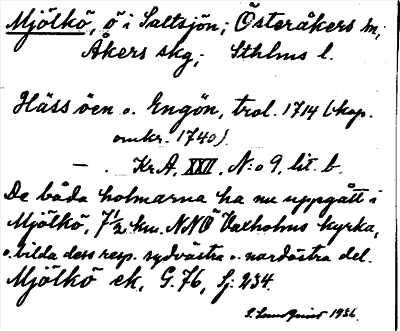 Mjölkö, ö i Saltsjön; Österåkers sn,
Åkers skg; Sthlms l.
Hässöen o. Engön, trol. 1714 (kop.
omkr. 1740).
— . Kr A, XXII, N:o 9, lit. b.
De båda holmarna ha nu uppgått i
Mjölkö, 7½ km. NNÖ Vaxholms kyrka,
o. bilda dess resp. sydvästra o. nordöstra del.
Mjölkö ek, G. 76, Sj: 234.
S. Lundquist 1936.